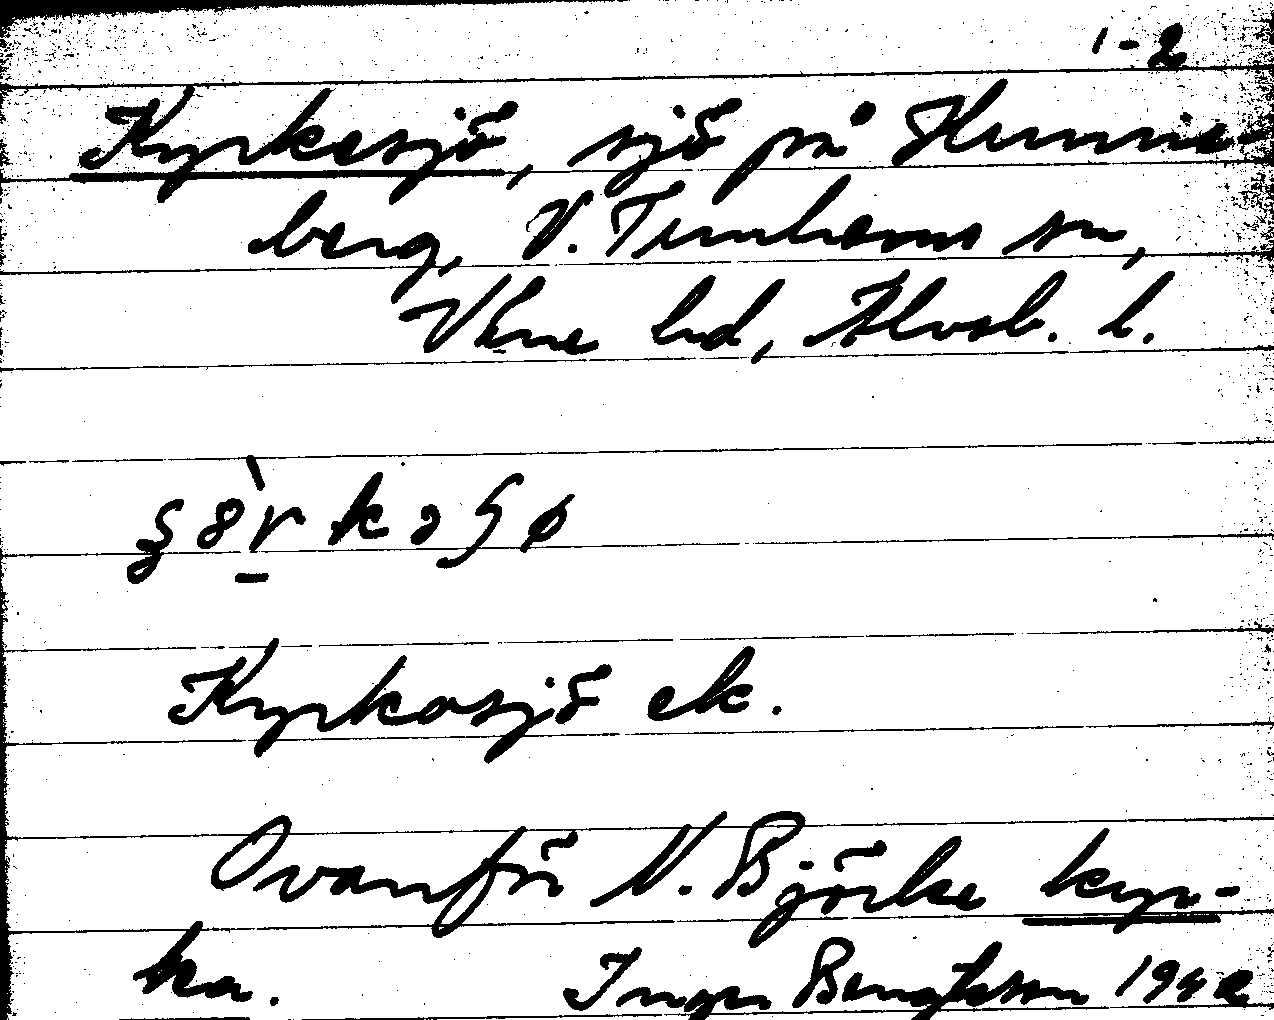 1-2
Kyrkesjö, sjö på Hunne-
berg, V. Tunhems sn,
Väne hd, Älvsb. l.
Kyrkosjö ek.
Ovanför N. Björke kyr-
ka. Inger Bengtsson 1942